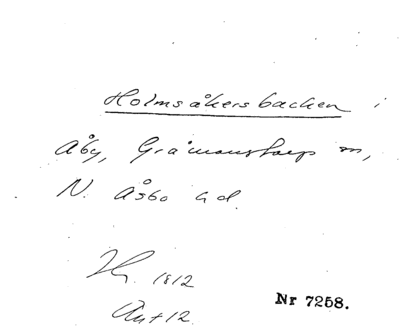 Holmsåkersbacken i
Åby, Gråmanstorps sn,
N. Åsbo hd.
1812
Akt 12.
Nr 7258.